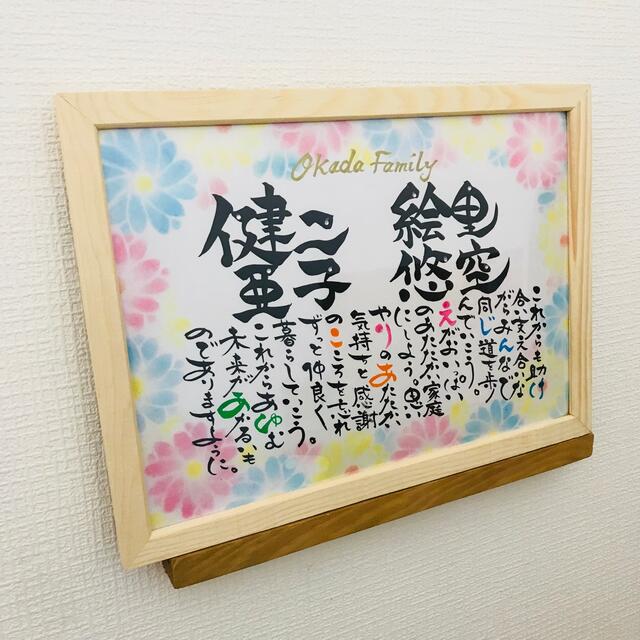 Okada Family
健二
絵里
亜子
悠空
これからも助け
合い支え合いな
がらみんなで
同じ道を歩
んでいこう。
えがおいっぱい
のあたたかい家庭
にしよう。思い
やりのあたたかい
気持ちと感謝
のこころを忘れ
ずっと仲良く
暮らしていこう。
これからあゆむ
未来があかるいも
のでありますように。